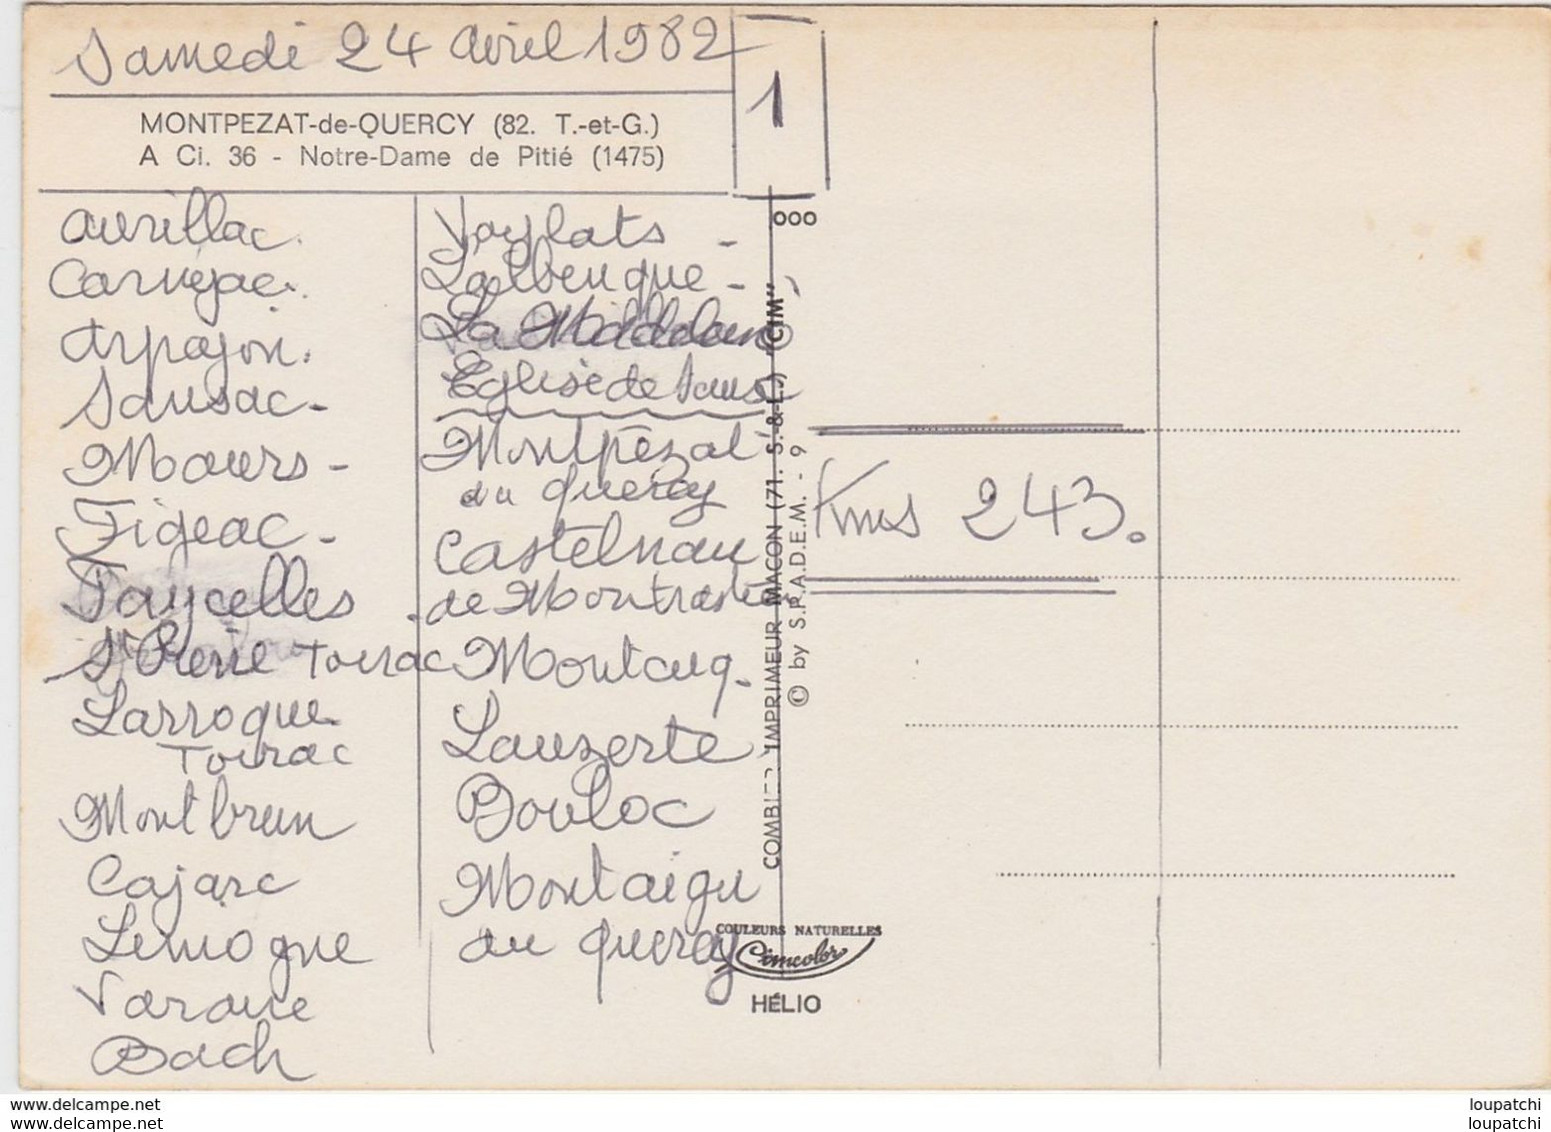 Samedi 24 avril 1982
1
MONTPEZAT-de-QUERCY (82. T.-et-G.)
A Ci. 36 - Notre-Dame de Pitié (1475)
aurillac.
Carnejac.
Arpajon.
Sansac -
Maurs -
Figeac -
Faycelles
St Pierre Toirac
Larroque
Toirac
Montbrun
Cajarc
Limogne
Varaire
Bach
Vaylats -
Lalbenque -
La Maddelene
Eglise de Saux
Montpézat
du quercy
Castelnau
de Montratier
Montcuq -
Lauzerte
Bouloc
Montaigu
du quercy
000
COMBIER IMPRIMEUR MACON (71. S.-&-L.) "CIM"
© by S.P.A.D.E.M. - 9
Kms 243.
COULEURS NATURELLES
Cimcolor
HÉLIO
www.delcampe.net
your_user_name
loupatchi
loupatchi